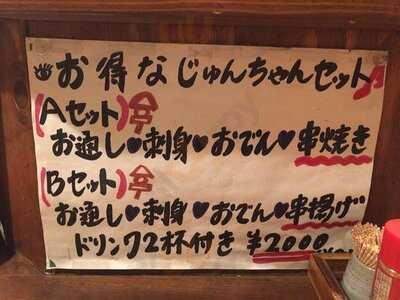 お得なじゅんちゃんセット
(Aセット)
お通し♥刺身♥おでん♥串焼き
(Bセット)
お通し♥刺身♥おでん♥串揚げ
ドリンク2杯付き ¥2000